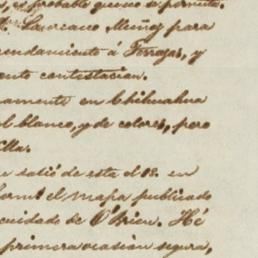 es probable que no se permita.
Laureano Muñoz para
rendamiento á Terrazas, y
ente contestacion.
amente en Chihuahua
l blanco, y de colores, pero
lla.
salió de este el 13. en
el mapa publicado
cuidado de O'Brien. Hé
primera ocasión segura,